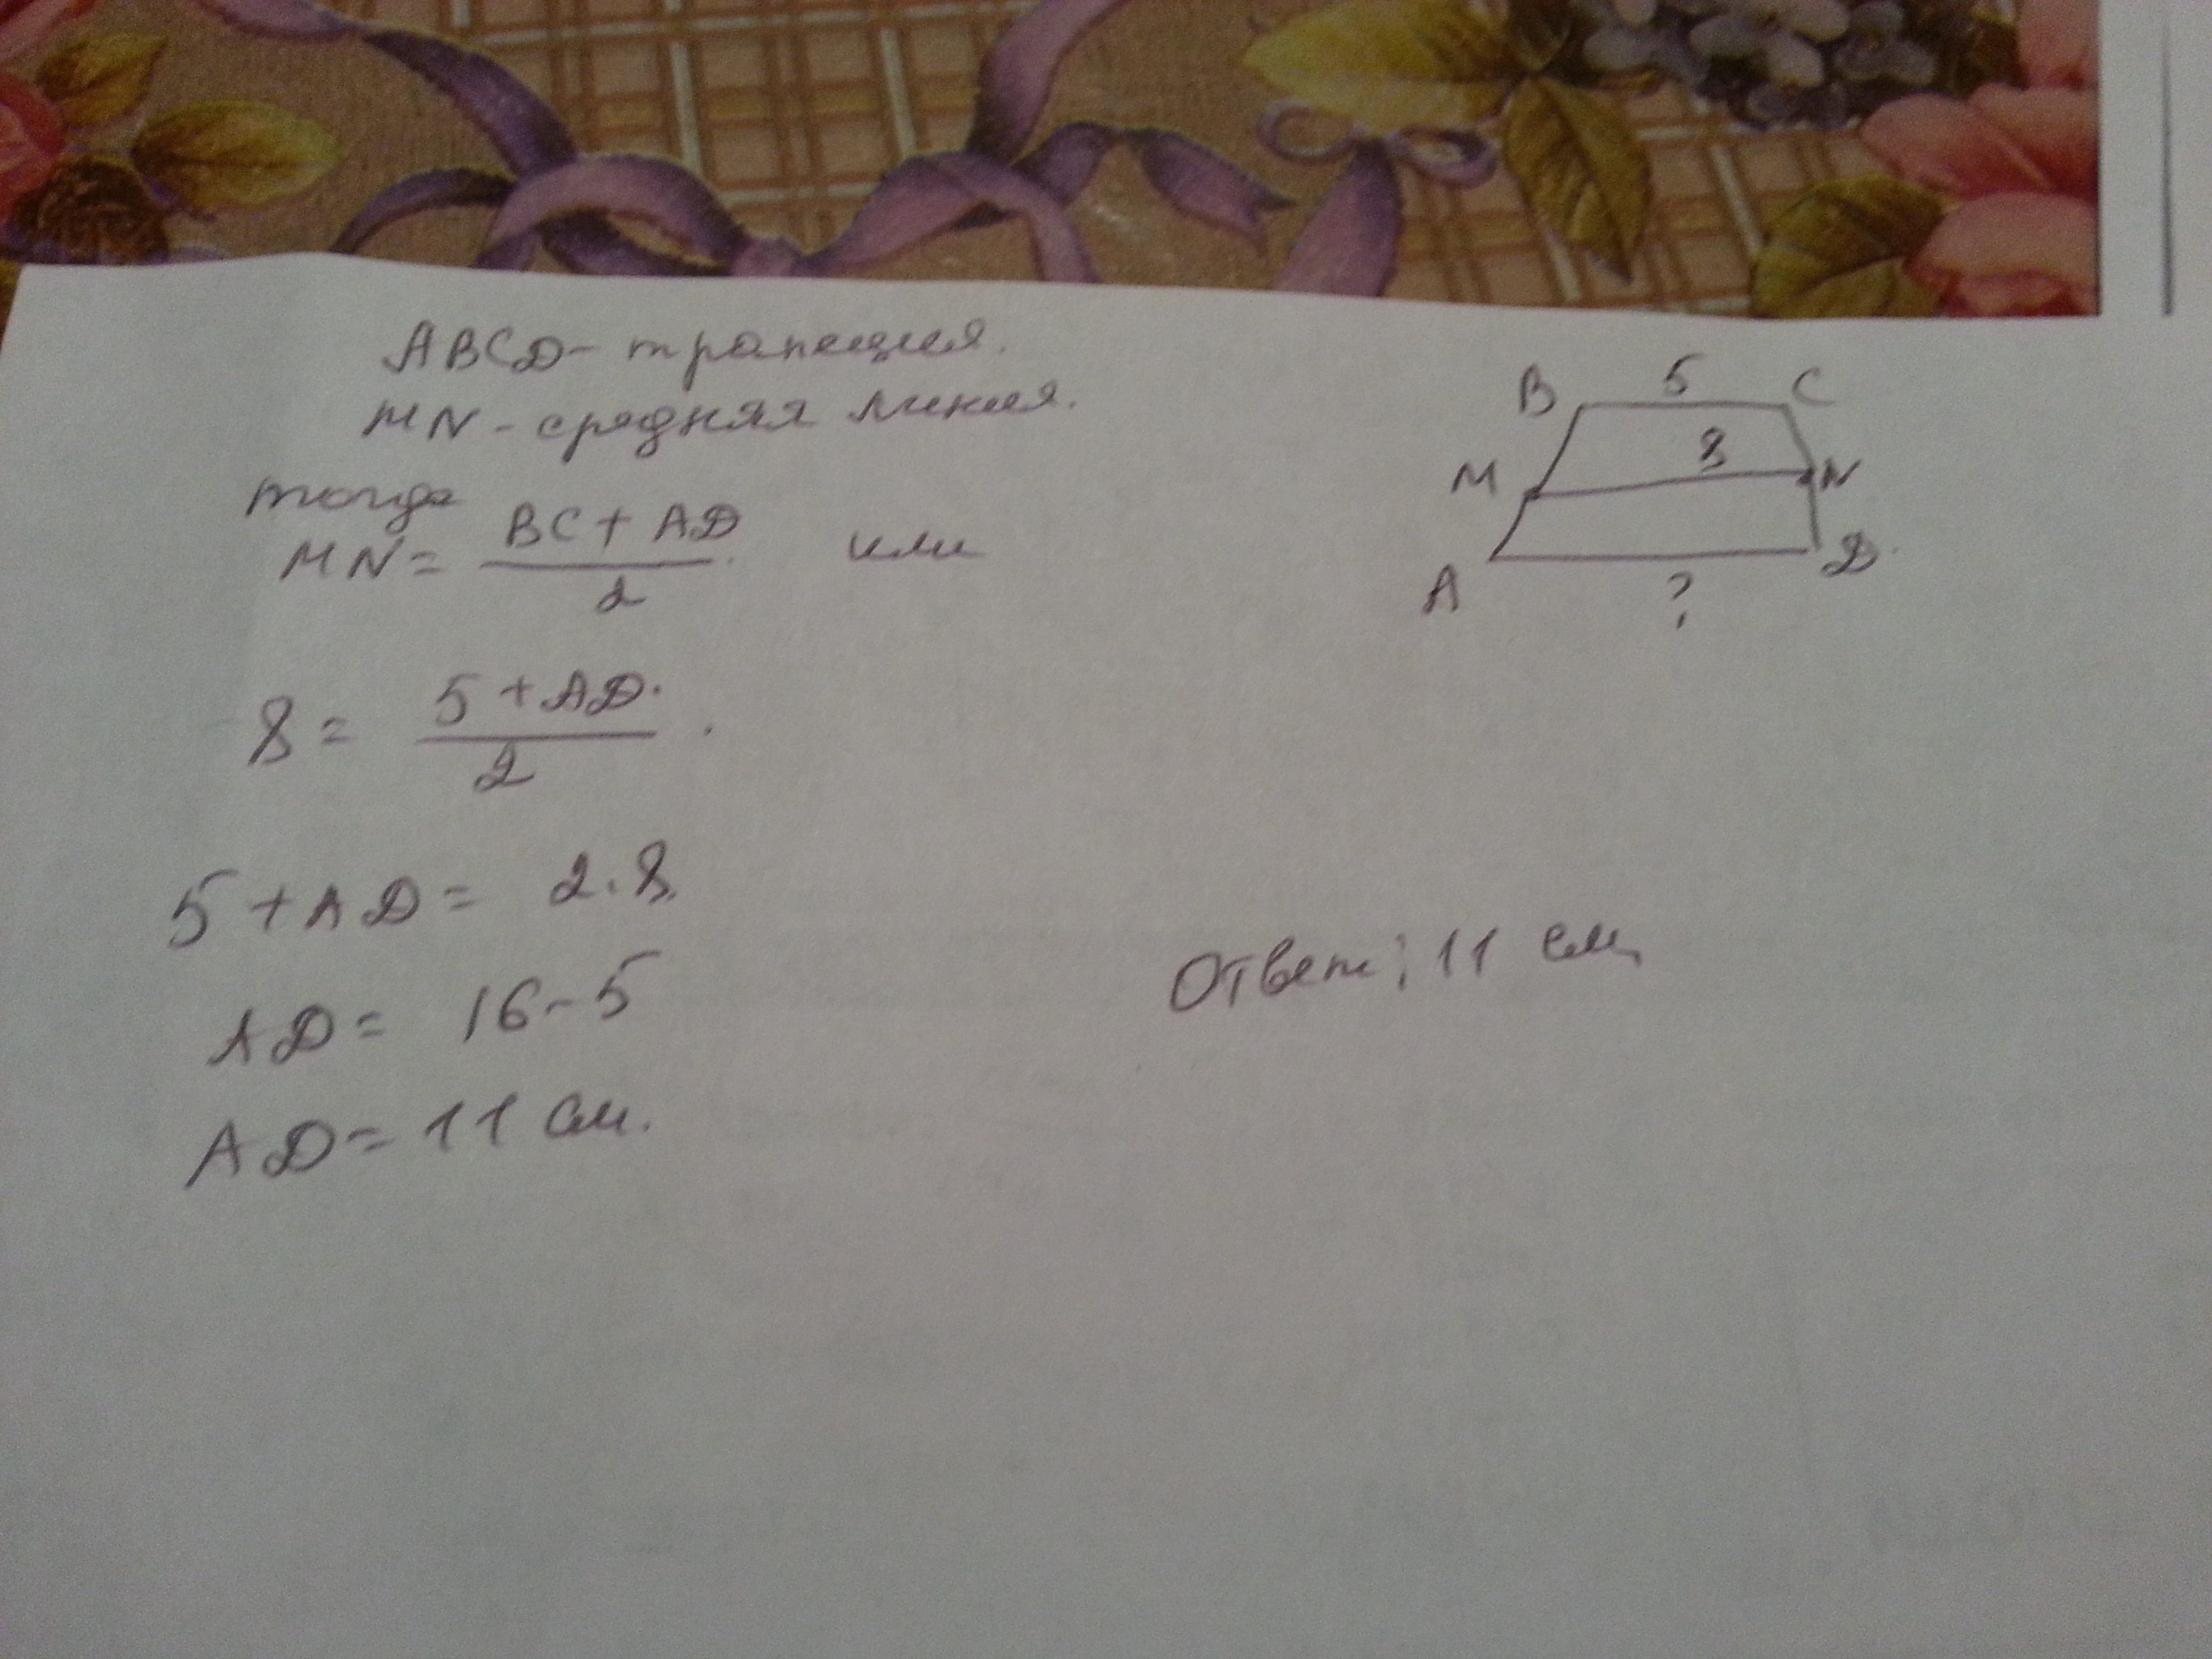 ABCD - трапеция.
MN - средняя линия.
тогда
MN = BC + AD / 2 или
8 = 5 + AD / 2.
5 + AD = 2 · 8
AD = 16 - 5
AD = 11 см.
B 5 C
8
M N
A ? D
Ответ: 11 см